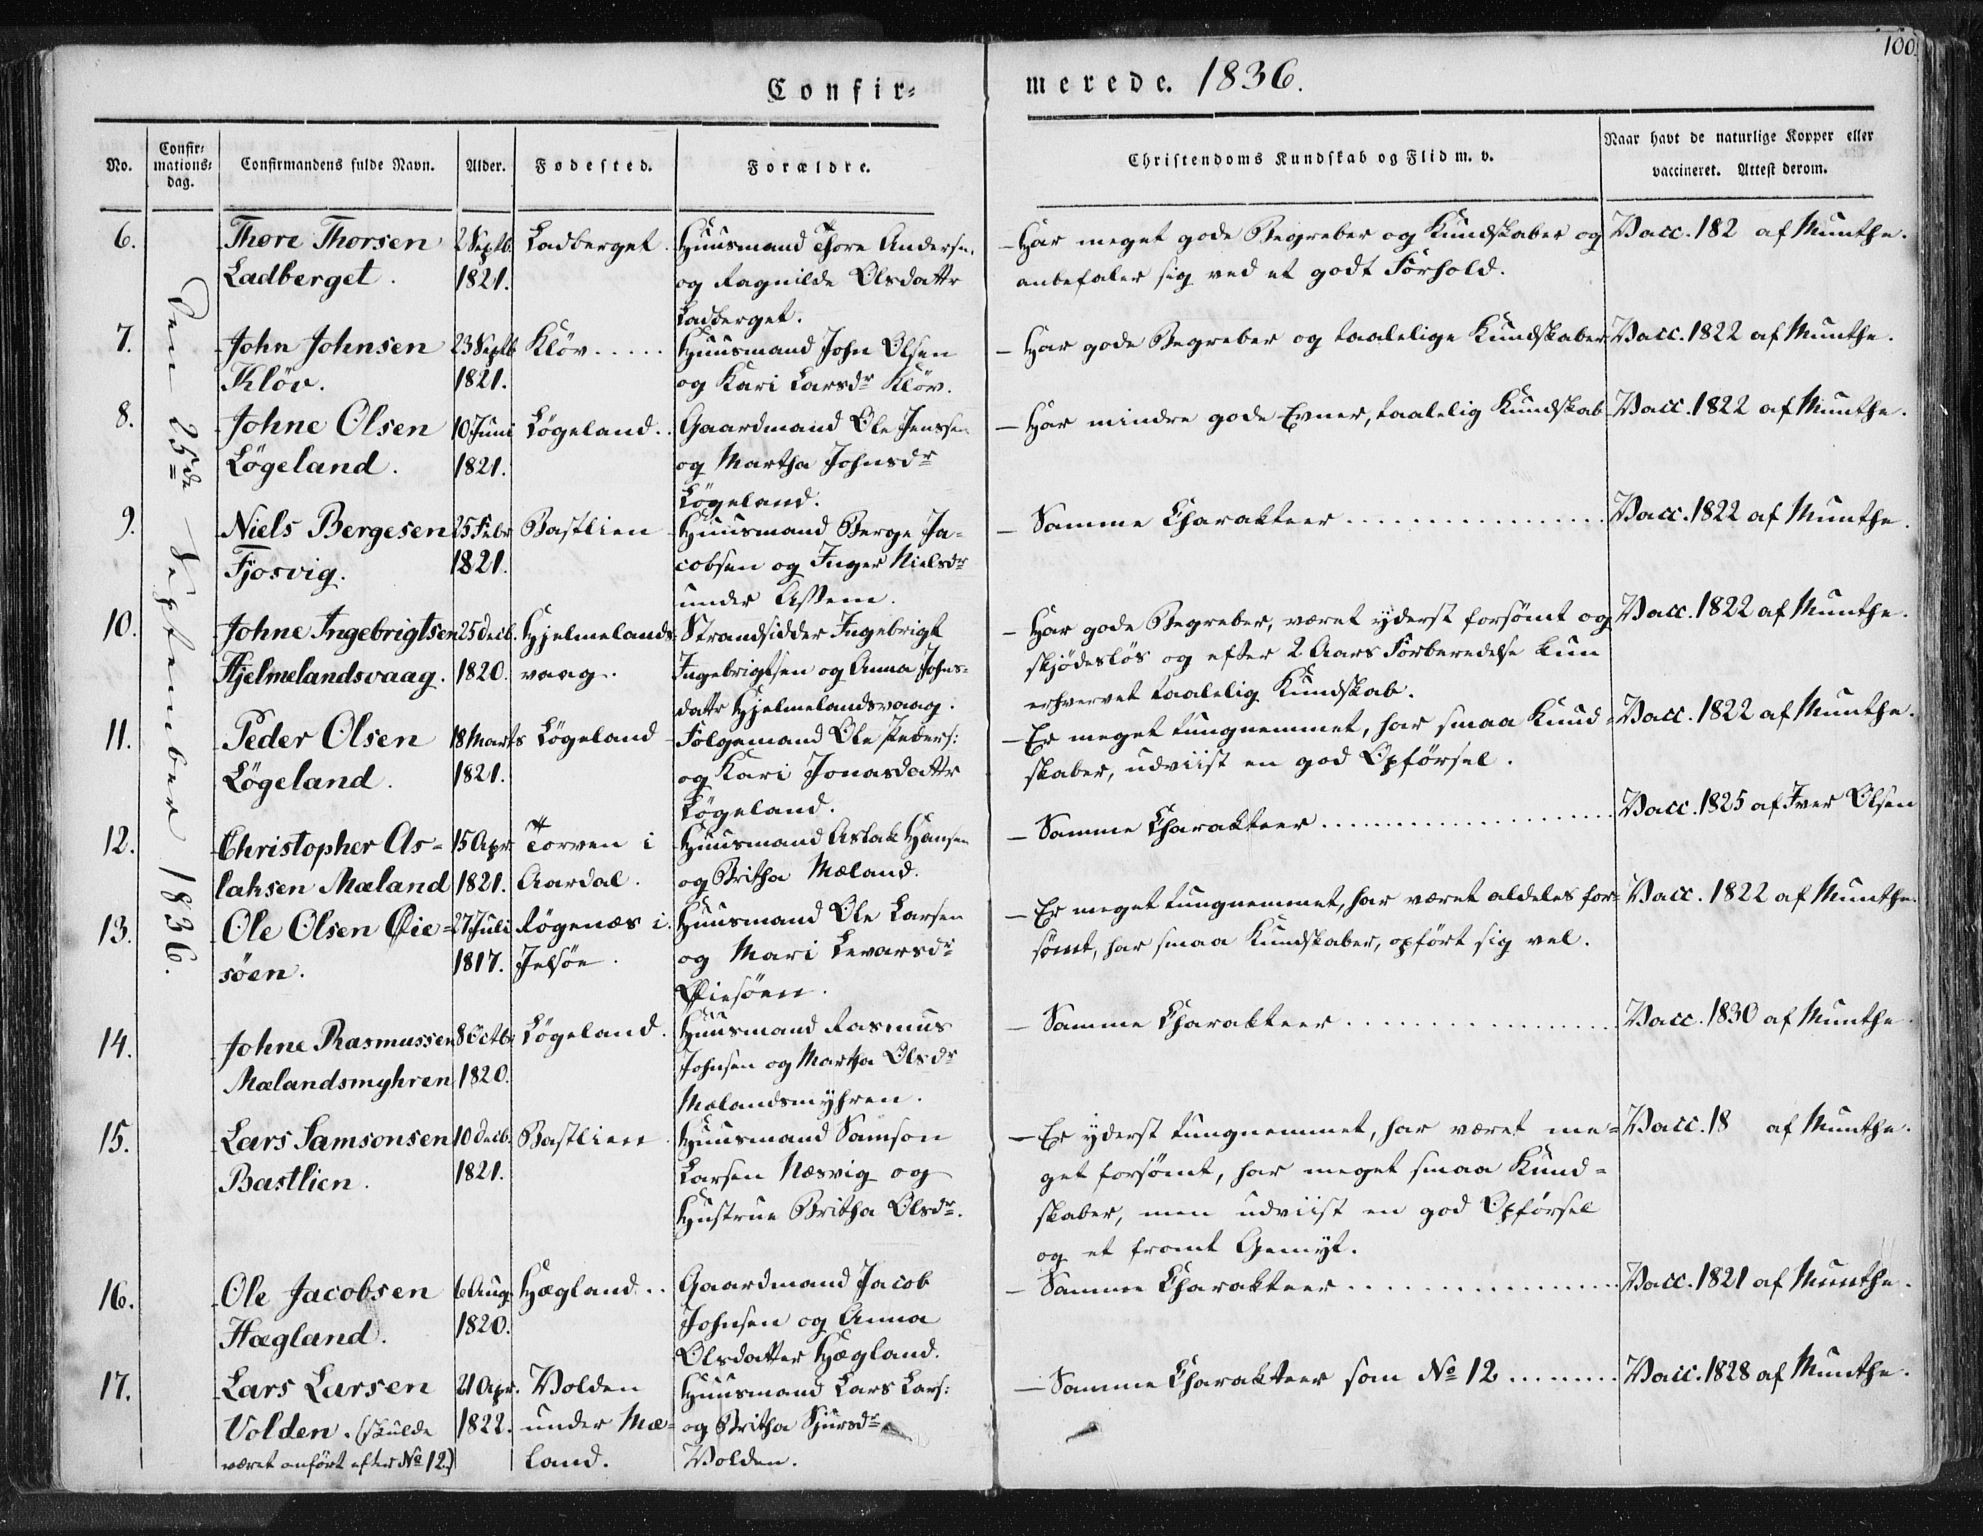 100.
Confir=
merede. 1836.
No.
Confir:
mations:
dag.
Confirmandens fulde Navn.
Alder.
Fødested.
Forældre.
Christendoms Kundskab og Flid m. v.
Naar havt de naturlige Kopper eller
vaccineret. Attest derom.
Den 25de September 1836.
6.
Thore Thorsen
Ladberget.
2 Septb.
1821.
Ladberget.
Huusmand Thore Andersn.
og Ragnilde Olsdattr
Ladberget.
- Har meget gode Begreber og Kundskaber og
anbefaler sig ved et godt Forhold.
Vacc. 182 af Munthe.
7.
John Johnsen
Kløv.
23 Septb
1821.
Kløv.....
Huusmand John Olsen
og Kari Larsdr Kløv.
- Har gode Begreber og taalelige Kundskaber
Vacc. 1822 af Munthe.
8.
Johne Olsen
Løgeland.
10 Juni
1821.
Løgeland..
Gaardmand Ole Jenssen
og Martha Johnsdr
Løgeland.
- Har mindre gode Evner, taalelig Kundskab
Vacc. 1822 af Munthe.
9.
Niels Bergesen
Fjosvig.
25 Febr
1821.
Bastlien
Huusmand Berge Ja=
cobsen og Inger Nielsdr
under Assem.
- Samme Charakteer ................
Vacc. 1822 af Munthe.
10.
Johne Ingebrigtsen
Hjelmelandsvaag.
25 Decb.
1820.
Hjelmelands
vaag..
Strandsidder Ingebrigt
Ingebrigtsen og Anna Johns=
dattr Hjelmelandsvaag.
- Har gode Begreber, været yderst forsømt og
skjødesløs og efter 2 Aars Forberedelse kun
erhvervet taalelig Kundskab.
Vacc. 1822 af Munthe.
11.
Peder Olsen
Løgeland.
18 Marts
1821.
Løgeland
Følgemand Ole Peders:
og Kari Jonasdattr
Løgeland.
- Er meget tungnemmet, har smaa Kund=
skaber, udviist en god Opførsel.
Vacc. 1822 af Munthe.
12.
Christopher As=
laksen Mæland
15 Apr
1821.
Torven i
Aardal.
Huusmand Aslak Hansen
og Britha Mæland.
- Samme Charakteer ....................
Vacc. 1825 af Iver Olsen
13.
Ole Olsen Øie=
søen.
27 Juli
1817.
Røgenæs i
Jelsøe.
Huusmand Ole Larsen
og Mari Levarsdr
Øiesøen.
- Er meget tungnemmet, har været aldeles for=
sømt, har smaa Kundskaber, opført sig vel.
Vacc. 1822 af Munthe.
14.
Johne Rasmussen
Mælandsmyhren
8 Octb:
1820.
Løgeland.
Huusmand Rasmus
Johnsen og Martha Olsdr
Mælandsmyhren.
- Samme Charakteer ................
Vacc. 1830 af Munthe.
15.
Lars Samsonsen
Bastlien.
10 Decb.
1821.
Bastlien
Huusmand Samson
Larsen Næsvig og
Hustrue Britha Olsdr.
- Er yderst tungnemmet, har været me=
get forsømt, har meget smaa Kund=
skaber, men udviist en god Opførsel
og et fromt Gemyt.
Vacc. 18 af Munthe.
16.
Ole Jacobsen
Hægland.
6 Aug.
1820.
Hægland..
Gaardmand Jacob
Johnsen og Anna
Olsdatter Hægland.
- Samme Charakteer .................
Vacc. 1821 af Munthe.
17.
Lars Larsen
Volden. (skulde
været anført efter No 12)
21 Apr.
1822.
Volden
under Mæ=
land.
Huusmand Lars Lars:
og Britha Sjursdr
Volden.
- Samme Charakteer som No 12 .........
Vacc. 1828 af Munthe.